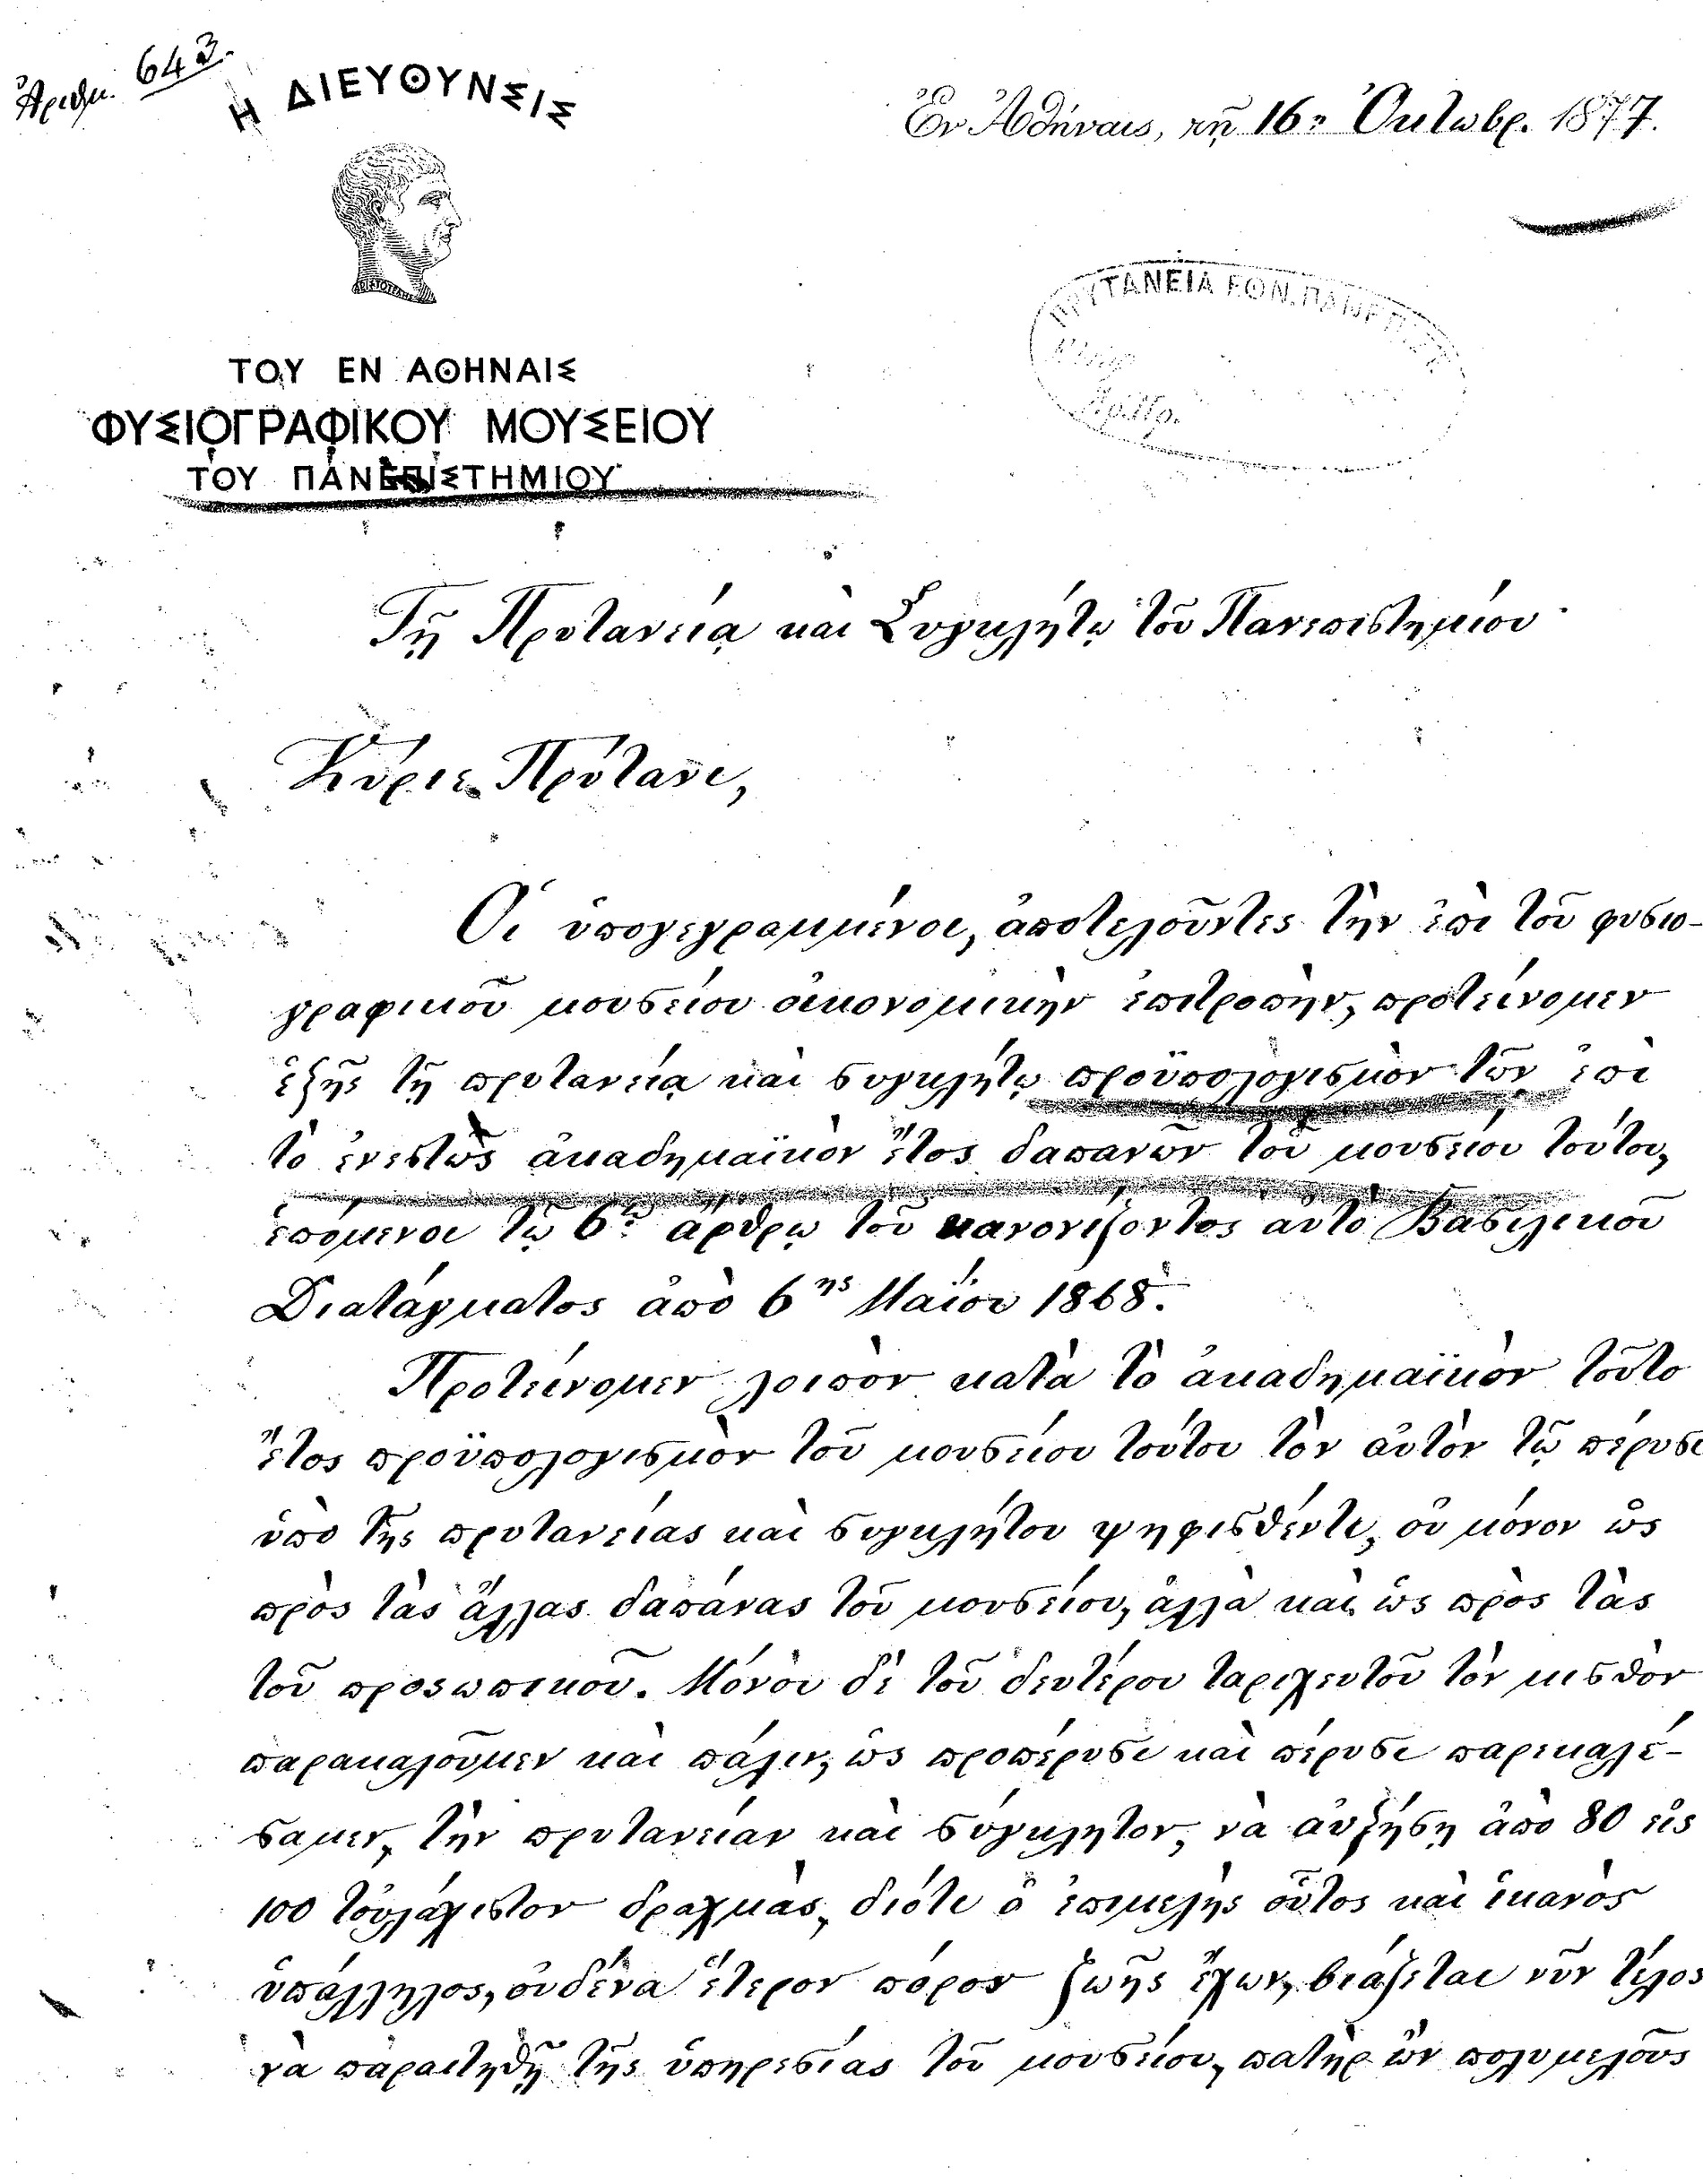 Ἀριθμ. 643.
Η ΔΙΕΥΘΥΝΣΙΣ
Ἐν Ἀθήναις, τῇ 16ῃ Ὀκτωβρ. 1877.
ΑΡΙΣΤΟΤΕΛΗΣ
ΠΡΥΤΑΝΕΙΑ ΕΘΝ. ΠΑΝΕΠΙΣΤ.
ΤΟΥ ΕΝ ΑΘΗΝΑΙΣ
ΦΥΣΙΟΓΡΑΦΙΚΟΥ ΜΟΥΣΕΙΟΥ
ΤΟΥ ΠΑΝΕΠΙΣΤΗΜΙΟΥ
Τῇ Πρυτανείᾳ καὶ Συγκλήτῳ τοῦ Πανεπιστημίου
Κύριε Πρύτανι,
Οἱ ὑπογεγραμμένοι, ἀποτελοῦντες τὴν ἐπὶ τοῦ φυσιο-
γραφικοῦ μουσείου οἰκονομικὴν ἐπιτροπὴν, προτείνομεν
ἑξῆς τῇ πρυτανείᾳ καὶ συγκλήτῳ προϋπολογισμὸν τῶν ἐπὶ
τὸ ἐνεστὼς ἀκαδημαϊκὸν ἔτος δαπανῶν τοῦ μουσείου τούτου,
ἑπόμενοι τῷ 6ῳ ἄρθρῳ τοῦ κανονίζοντος αὐτὸ Βασιλικοῦ
Διατάγματος ἀπὸ 6ης Μαΐου 1868.
Προτείνομεν λοιπὸν κατὰ τὸ ἀκαδημαϊκὸν τοῦτο
ἔτος προϋπολογισμὸν τοῦ μουσείου τούτου τὸν αὐτὸν τῷ πέρυσι
ὑπὸ τῆς πρυτανείας καὶ συγκλήτου ψηφισθέντι, οὐ μόνον ὡς
πρὸς τὰς ἄλλας δαπάνας τοῦ μουσείου, ἀλλὰ καὶ ὡς πρὸς τὰς
τοῦ προσωπικοῦ. Μόνον δὲ τοῦ δευτέρου ταριχευτοῦ τὸν μισθὸν
παρακαλοῦμεν καὶ πάλιν, ὡς προπέρυσι καὶ πέρυσι παρεκαλέ-
σαμεν, τὴν πρυτανείαν καὶ σύγκλητον, νὰ αὐξήσῃ ἀπὸ 80 εἰς
100 τοὐλάχιστον δραχμὰς, διότι ὁ ἐπιμελὴς οὗτος καὶ ἱκανὸς
ὑπάλληλος, οὐδένα ἕτερον πόρον ζωῆς ἔχων, βιάζεται νῦν τέλος
νὰ παραιτηθῇ τῆς ὑπηρεσίας τοῦ μουσείου, πατὴρ ὢν πολυμελοῦς